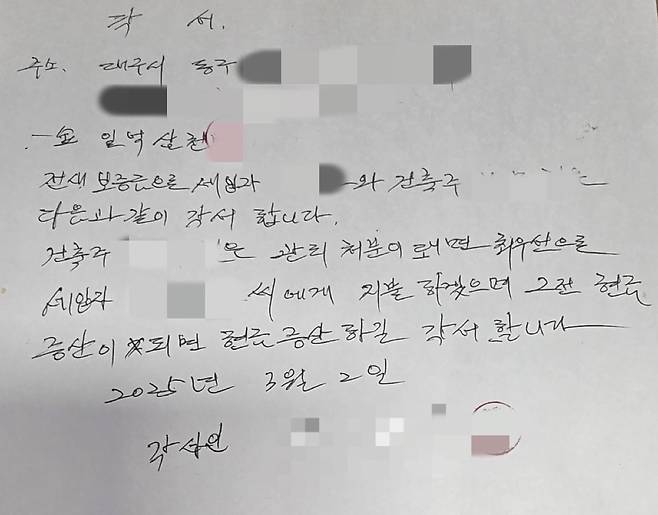 각 서.
주소. 대구시 동구
一金 일억 삼천
전세 보증금으로 세입자 와 건축주 는
다음과 같이 각서 합니다.
건축주 은 관리 처분이 되면 최우선으로
세입자 씨에게 지불 하겠으며 그전 현금
증산이 되면 현금 증산 하길 각서 합니다
2025년 3월 2일
각서인